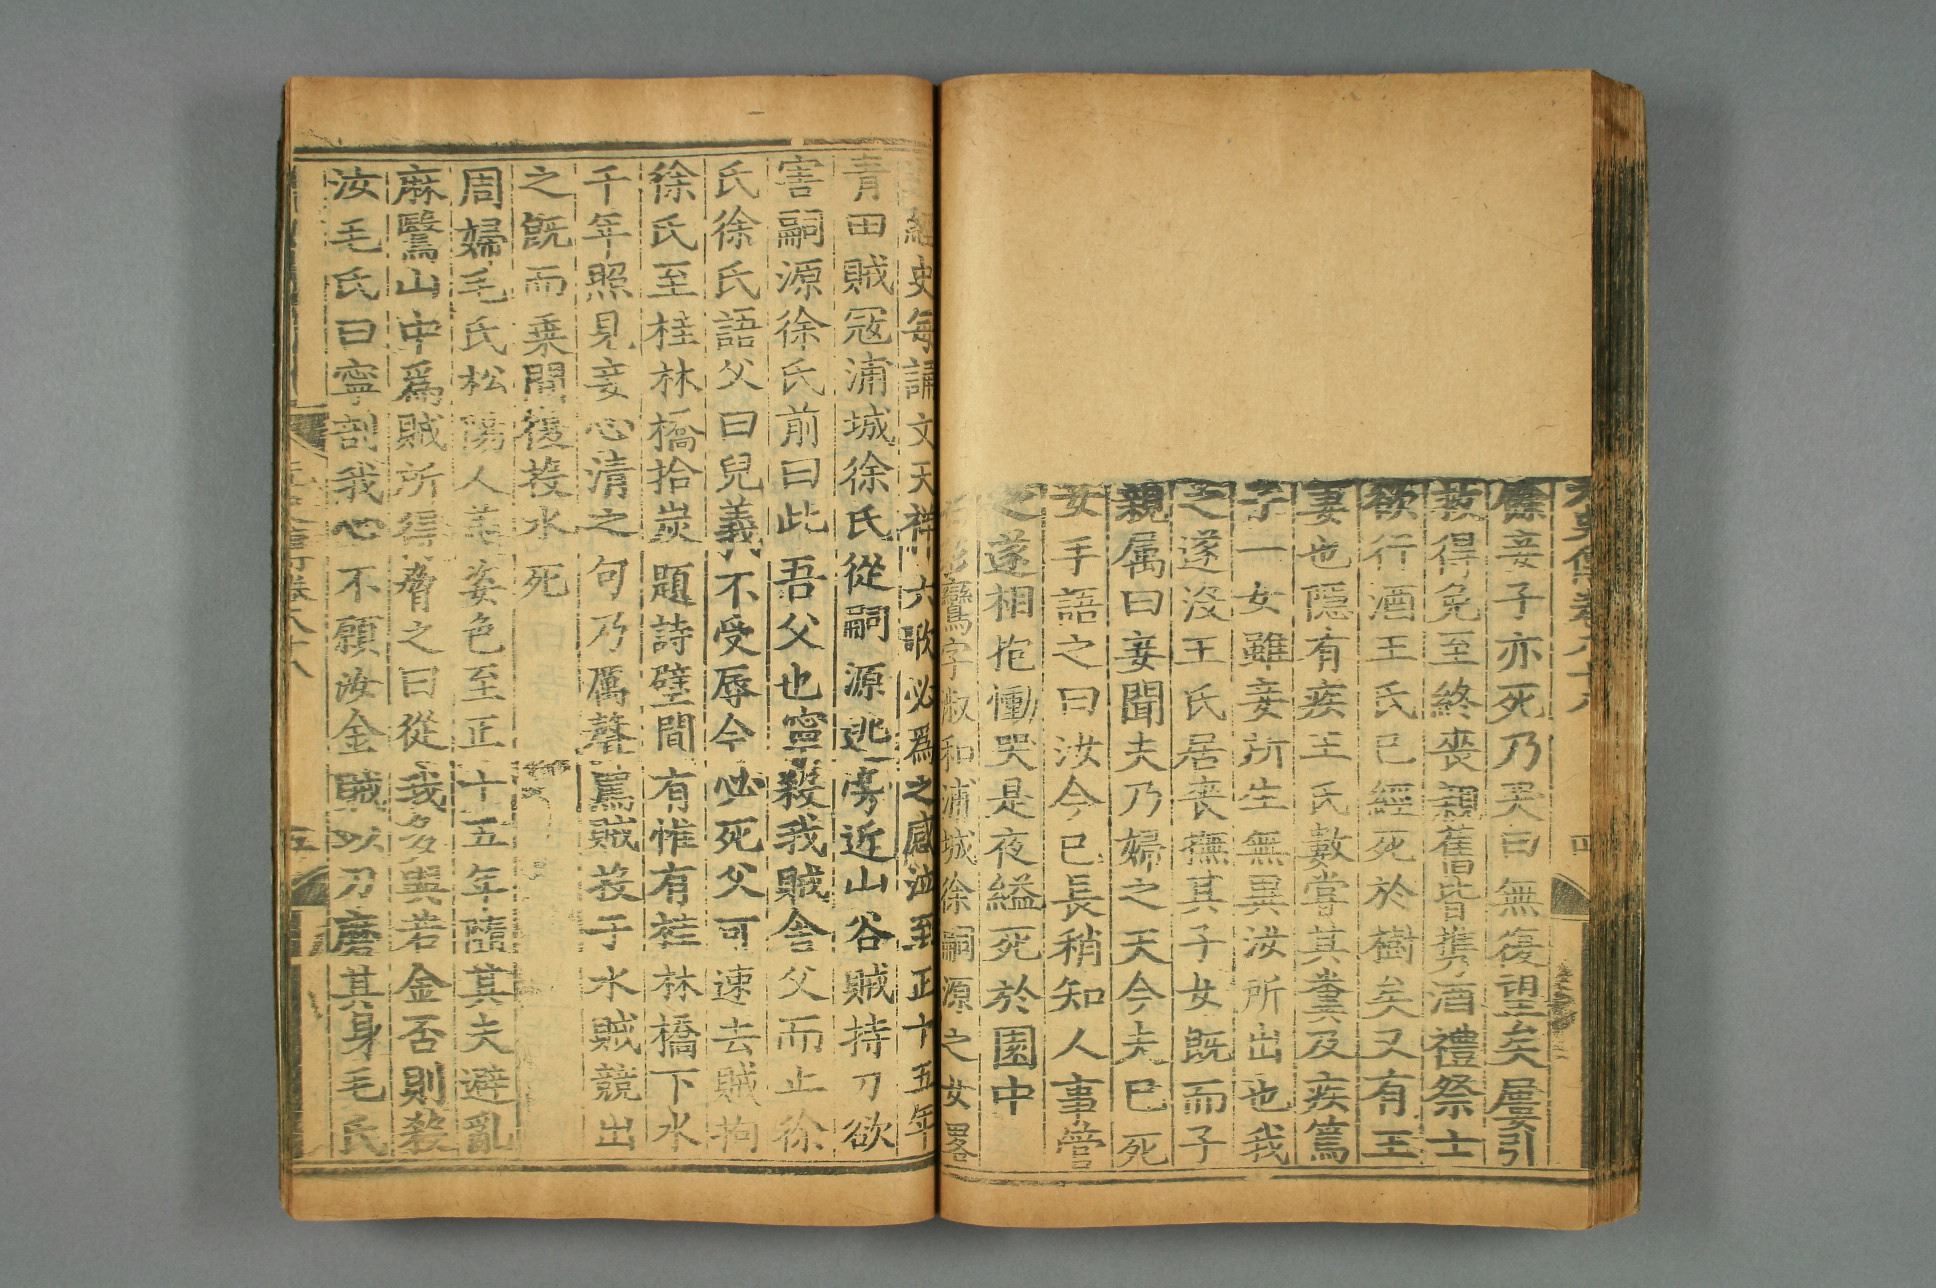 元史傳卷八十八 四
餘妾子亦死乃哭曰無復望矣屢引
救得免至終喪親舊皆携酒禮祭士
欲行酒王氏已經死於樹矣又有王
妻也隱有疾王氏數嘗其糞及疾篤
子一女雖妾所生無異汝所出也我
之遂沒王氏居喪撫其子女既而子
親属曰妾聞夫乃婦之天今夫已死
女手語之曰汝今已長稍知人事管
之遂相抱慟哭是夜縊死於園中
鸞字淑和浦城徐嗣源之女畧
經史每誦文天祥六歌必爲之感泣至正十五年
青田賊寇浦城徐氏從嗣源逃旁近山谷賊持刀欲
害嗣源徐氏前曰此吾父也寧殺我賊舍父而止徐
氏徐氏語父曰兒義不受辱今必死父可速去賊拘
徐氏至桂林橋拾炭題詩壁間有惟有桂林橋下水
千年照見妾心清之句乃厲聲罵賊投于水賊競出
之既而乘間復投水死
周婦毛氏松陽人美姿色至正十五年隨其夫避亂
麻鷖山中爲賊所得脅之曰從我多與若金否則殺
汝毛氏曰寧剖我心不願汝金賊以刀磨其身毛氏
卷八十八 五